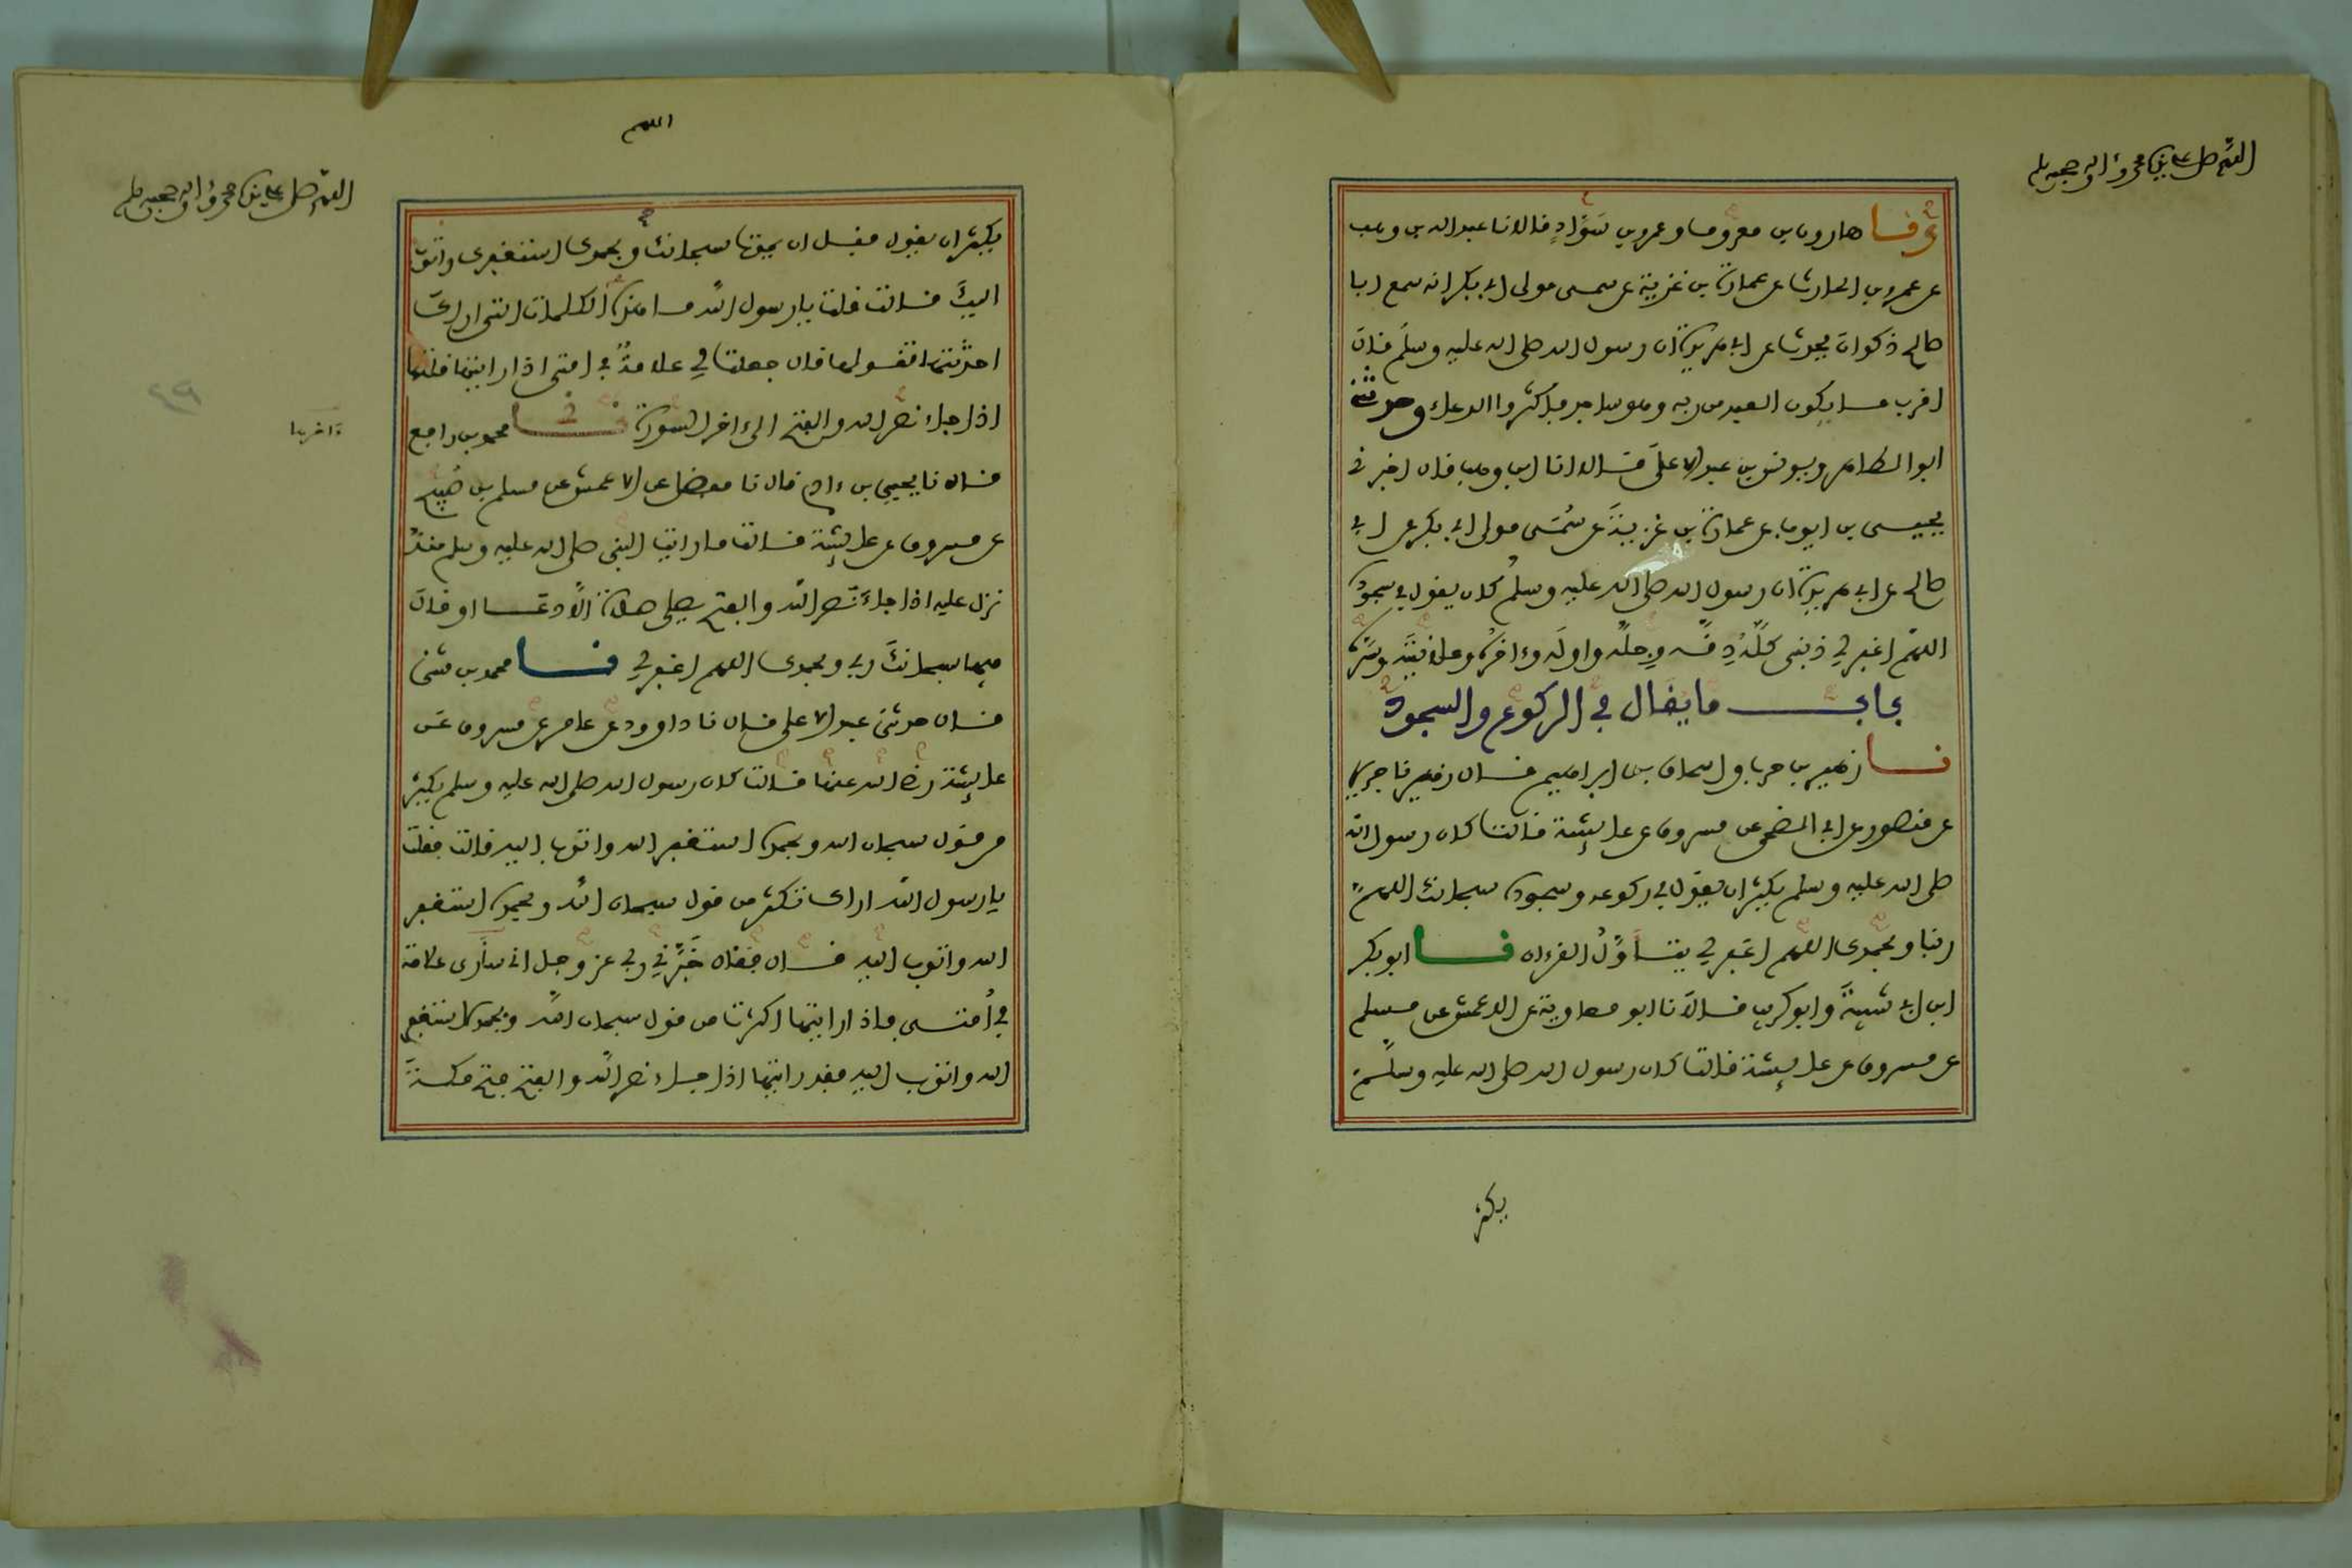 اللهم صل على نبينا محمد وءاله وصحبه وسلم
نا هارون بن معروف وعمرو بن سَوَّادٍ قالا نا عبد الله بن وهب
عن عمرو بن الحارث عن عمارة بن غزية عن سمى مولى ابى بكر انه سمع ابا
صالح ذكوان يحدث عن ابى هريرة ان رسول الله صلى الله عليه وسلم قال
اقرب ما يكون العبد من ربه وهو ساجد فاكثروا الدعاء وحدثنى
ابو الطاهر ويونس بن عبد الاعلى قالا انا ابن وهب قال اخبرنى
يحيى بن ايوب عن عمارة بن غزية عن سُمَى مولى ابى بكر عن ابى
صالح عن ابى هريرة ان رسول الله صلى الله عليه وسلم كان يقول فى سجوده
اللهم اغفر لى ذنبى كله دقه وجله واوله وءاخره وعلانيته وسره
باب ما يقال فى الركوع والسجود
نا زهير بن حرب واسحاق بن ابراهيم قال زهير نا جرير
عن منصور عن ابى الضحى عن مسروق عن عايشة قالت كان رسول الله
صلى الله عليه وسلم يكثر ان يقول فى ركوعه وسجوده سبحانك اللهم
ربنا وبحمدك اللهم اغفر لى يتاوَّلُ القرءان نا ابو بكر
ابن ابى شيبة وابو كريب قالا نا ابو معاوية عن الاعمش عن مسلم
عن مسروق عن عايشة قالت كان رسول الله صلى الله عليه وسلم
يكثر
اللهم
اللهم صل على نبينا محمد وءاله وصحبه وسلم
يكثر ان يقول قبل ان يموت سبحانك وبحمدك استغفرك واتوب
اليك قالت قلت يا رسول الله ما هذه الكلمات التى اراك
احدثتها تقولها قال جعلت لى علامة فى امتى اذا رايتها قلتها
اذا جاء نصر الله والفتح الى ءاخر السورة نا محمد بن رافع
قال نا يحيى بن ءادم قال نا مفضل عن الاعمش عن مسلم بن صُبيح
عن مسروق عن عايشة قالت ما رايت النبى صلى الله عليه وسلم منذ
نزل عليه اذا جاء نصر الله والفتح يصلى صلاة الا دعا او قال
فيها سبحانك ربى وبحمدك اللهم اغفر لى نا محمد بن مثنى
قال حدثنى عبد الاعلى قال نا داوود عن عامر عن مسروق عن
عايشة رضى الله عنها قالت كان رسول الله صلى الله عليه وسلم يكثر
من قول سبحان الله وبحمده استغفر الله واتوب اليه قالت فقلت
يا رسول الله اراك تكثر من قول سبحان الله وبحمده استغفر
الله واتوب اليه قال فقال خَبَّرنى ربى عز وجل انى سأرى علامة
فى أمتى فاذا رايتها اكثرت من قول سبحان الله وبحمده استغفر
الله واتوب اليه فقد رايتها اذا جاء نصر الله والفتح فتح مكة